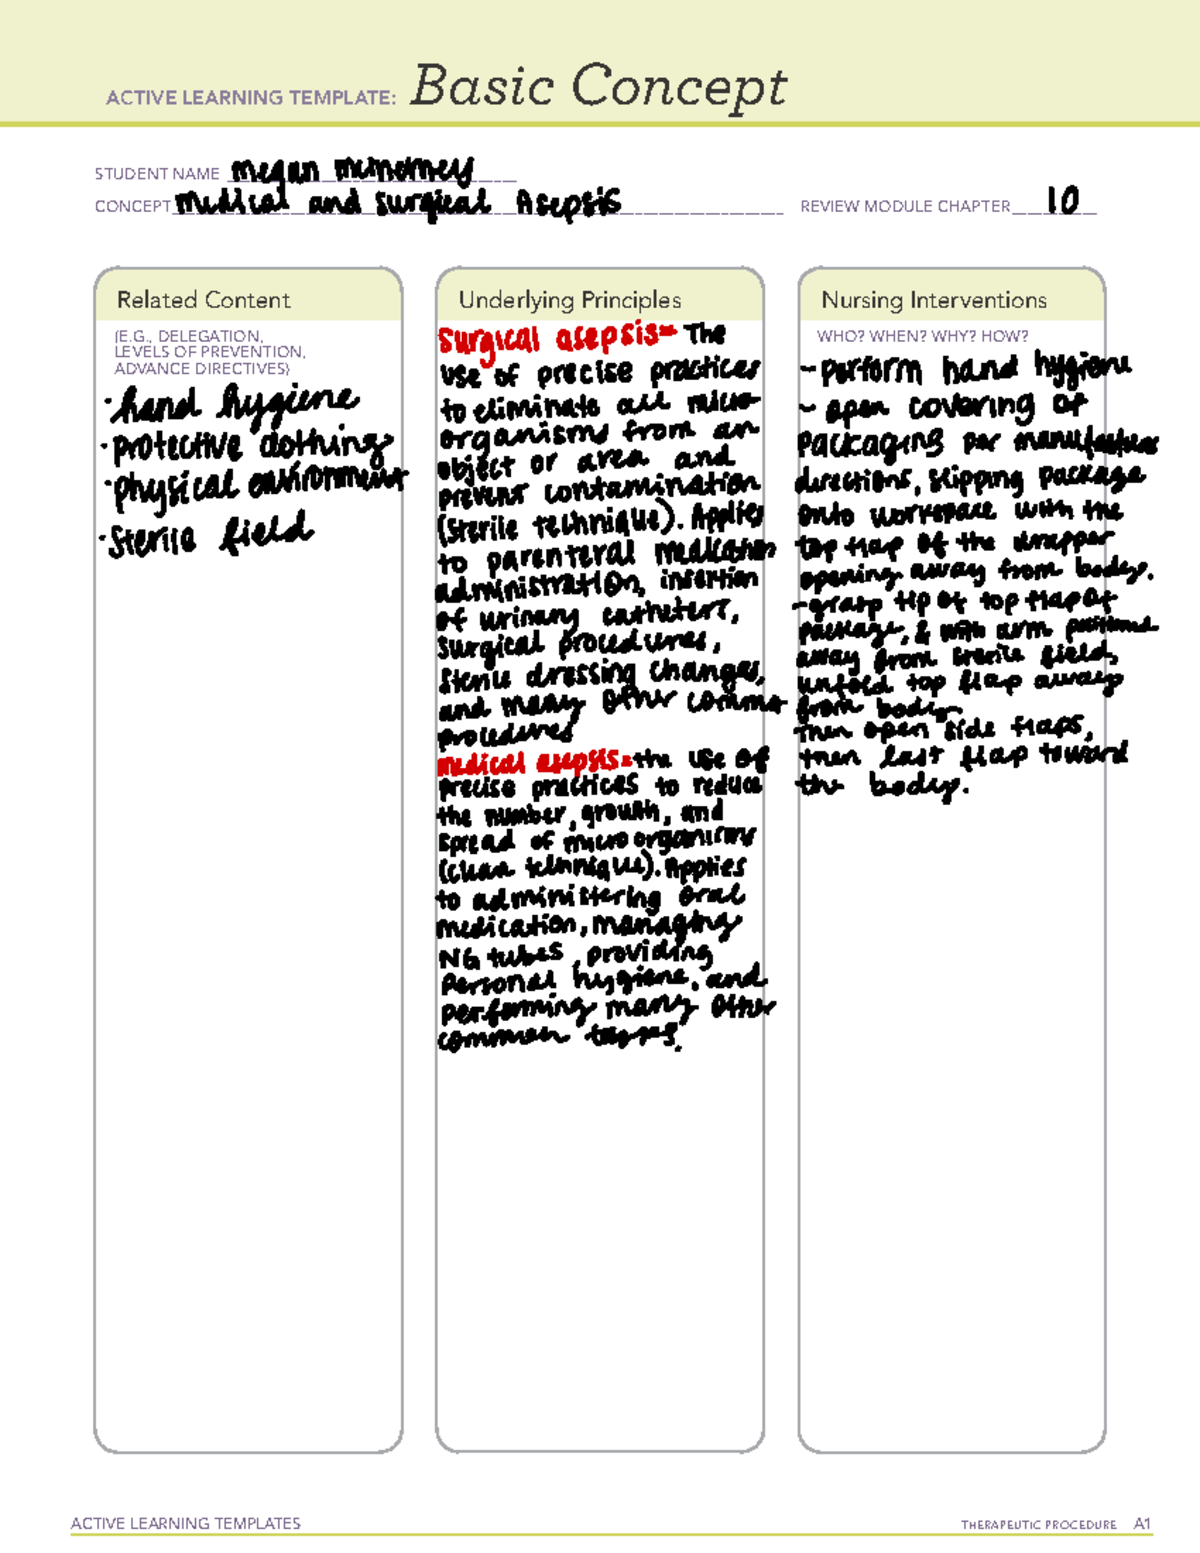 ACTIVE LEARNING TEMPLATE: Basic Concept
STUDENT NAME megan mcmorney
CONCEPT medical and surgical Asepsis REVIEW MODULE CHAPTER 10
Related Content
(E.G., DELEGATION,
LEVELS OF PREVENTION,
ADVANCE DIRECTIVES)
· hand hygiene
· protective clothing
· physical environment
· Sterile field
Underlying Principles
Surgical asepsis= The
use of precise practices
to eliminate all micro-
organisms from an
object or area and
prevent contamination
(sterile technique). Applies
to parenteral medication
administration, insertion
of urinary catheters,
surgical procedures,
sterile dressing changes,
and many other common
procedures
medical asepsis= the use of
precise practices to reduce
the number, growth, and
spread of microorganisms
(clean technique). Applies
to administering oral
medication, managing
NG tubes, providing
personal hygiene, and
performing many other
common tasks.
Nursing Interventions
WHO? WHEN? WHY? HOW?
- perform hand hygiene
- open covering of
packaging per manufacturer
directions, slipping package
onto workspace with the
top flap of the wrapper
opening away from body.
- grasp tip of top flap of
package, & with arm positioned
away from sterile field,
unfold top flap away
from body.
Then open side flaps,
then last flap toward
the body.
ACTIVE LEARNING TEMPLATES
THERAPEUTIC PROCEDURE A1